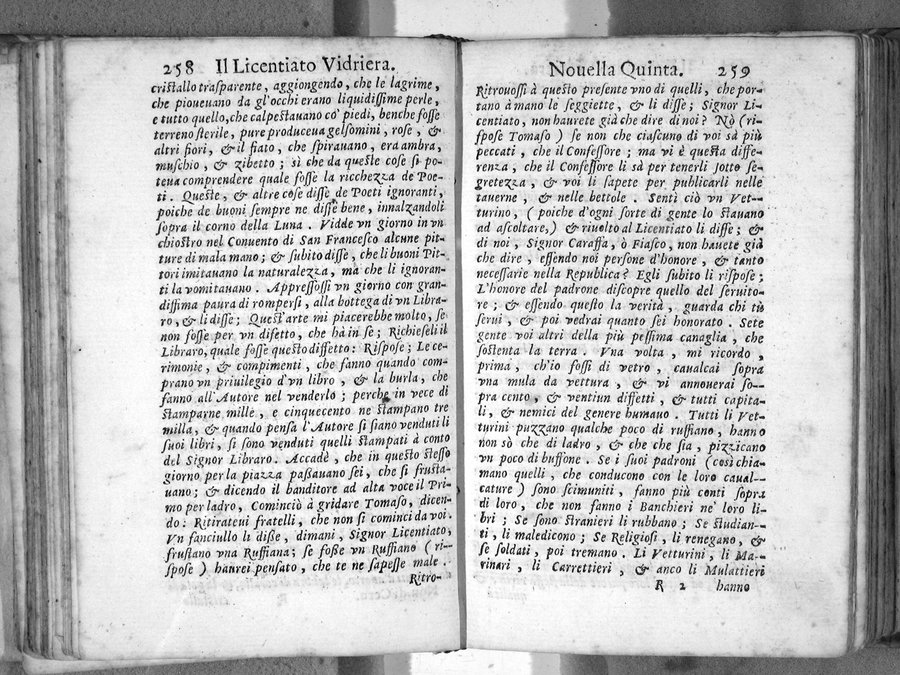 258 Il Licentiato Vidriera.
cristallo trasparente, aggiongendo, che le lagrime,
che pioueuano da gl'occhi erano liquidissime perle,
e tutto quello, che calpestauano co' piedi, benche fosse
terreno sterile, pure produceua gelsomini, rose, &
altri fiori, & il fiato, che spirauano, era ambra,
muschio, & zibetto; sì che da queste cose si po-
teua comprendere quale fosse la ricchezza de Poe-
ti. Queste, & altre cose disse de Poeti ignoranti,
poiche de buoni sempre ne disse bene, innalzandoli
sopra il corno della Luna. Vidde vn giorno in vn
chiostro nel Conuento di San Francesco alcune pit-
ture di mala mano; & subito disse, che li buoni Pit-
tori imitauano la naturalezza, ma che li ignoran-
ti la vomitauano. Appressossi vn giorno con gran-
dissima paura di rompersi, alla bottega di vn Libra-
ro, & li disse; Quest'arte mi piacerebbe molto, se
non fosse per vn difetto, che hà in se; Richieseli il
Libraro, quale fosse questo diffetto: Rispose; Le ce-
rimonie, & compimenti, che fanno quando com-
prano vn priuilegio d'vn libro, & la burla, che
fanno all'Autore nel venderlo; perche in vece di
stamparne mille, e cinquecento ne stampano tre
milla, & quando pensa l'Autore si siano venduti li
suoi libri, si sono venduti quelli stampati à conto
del Signor Libraro. Accadè, che in questo stesso
giorno per la piazza passauano sei, che si frusta-
uano; & dicendo il banditore ad alta voce il Pri-
mo per ladro, Cominciò à gridare Tomaso, dicen-
do: Ritirateui fratelli, che non si cominci da voi.
Vn fanciullo li disse, dimani, Signor Licentiato,
frustano vna Ruffiana; se fosse vn Ruffiano (ri-
spose) haurei pensato, che te ne sapesse male.
Ritro-
Nouella Quinta. 259
Ritrouossi à questo presente vno di quelli, che por-
tano à mano le seggiette, & li disse; Signor Li-
centiato, non haurete già che dire di noi? Nò (ri-
spose Tomaso) se non che ciascuno di voi sà più
peccati, che il Confessore; ma vi è questa diffe-
renza, che il Confessore li sà per tenerli sotto se-
gretezza, & voi li sapete per publicarli nelle
tauerne, & nelle bettole. Sentì ciò vn Vet-
turino, (poiche d'ogni sorte di gente lo stauano
ad ascoltare,) & riuolto al Licentiato li disse; &
di noi, Signor Caraffa, ò Fiasco, non hauete già
che dire, essendo noi persone d'honore, & tanto
necessarie nella Republica? Egli subito li rispose;
L'honore del padrone discopre quello del seruito-
re; & essendo questo la verità, guarda chi tù
serui, & poi vedrai quanto sei honorato. Sete
gente voi altri della più pessima canaglia, che
sostenta la terra. Vna volta, mi ricordo,
prima, ch'io fossi di vetro, caualcai sopra
vna mula da vettura, & vi annouerai so-
pra cento, & ventiun diffetti, & tutti capita-
li, & nemici del genere humano. Tutti li Vet-
turini puzzano qualche poco di ruffiano, hanno
non sò che di ladro, & che che sia, pizzicano
vn poco di buffone. Se i suoi padroni (così chia-
mano quelli, che conducono con le loro caual-
cature) sono scimuniti, fanno più conti sopra
di loro, che non fanno i Banchieri ne' loro li-
bri; Se sono stranieri li rubbano; Se studian-
ti, li maledicono; Se Religiosi, li renegano, &
se soldati, poi tremano. Li Vetturini, li Ma-
rinari, li Carrettieri, & anco li Mulattieri
R 2 hanno